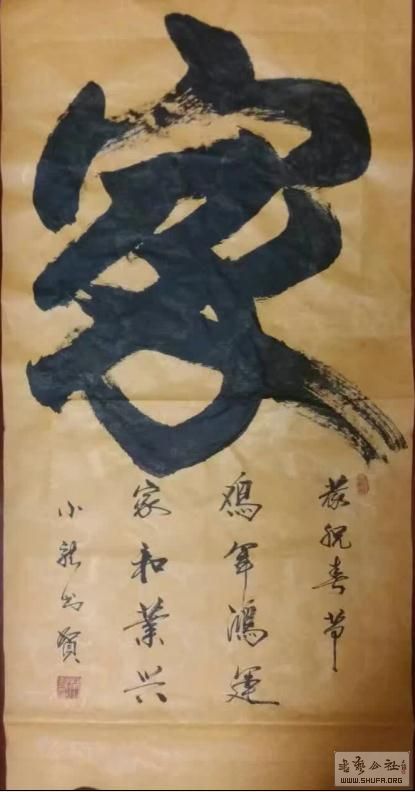 家
恭祝春节
鸡年鸿运
家和業兴
小龍书賀
书艺公社
WWW.SHUFA.ORG